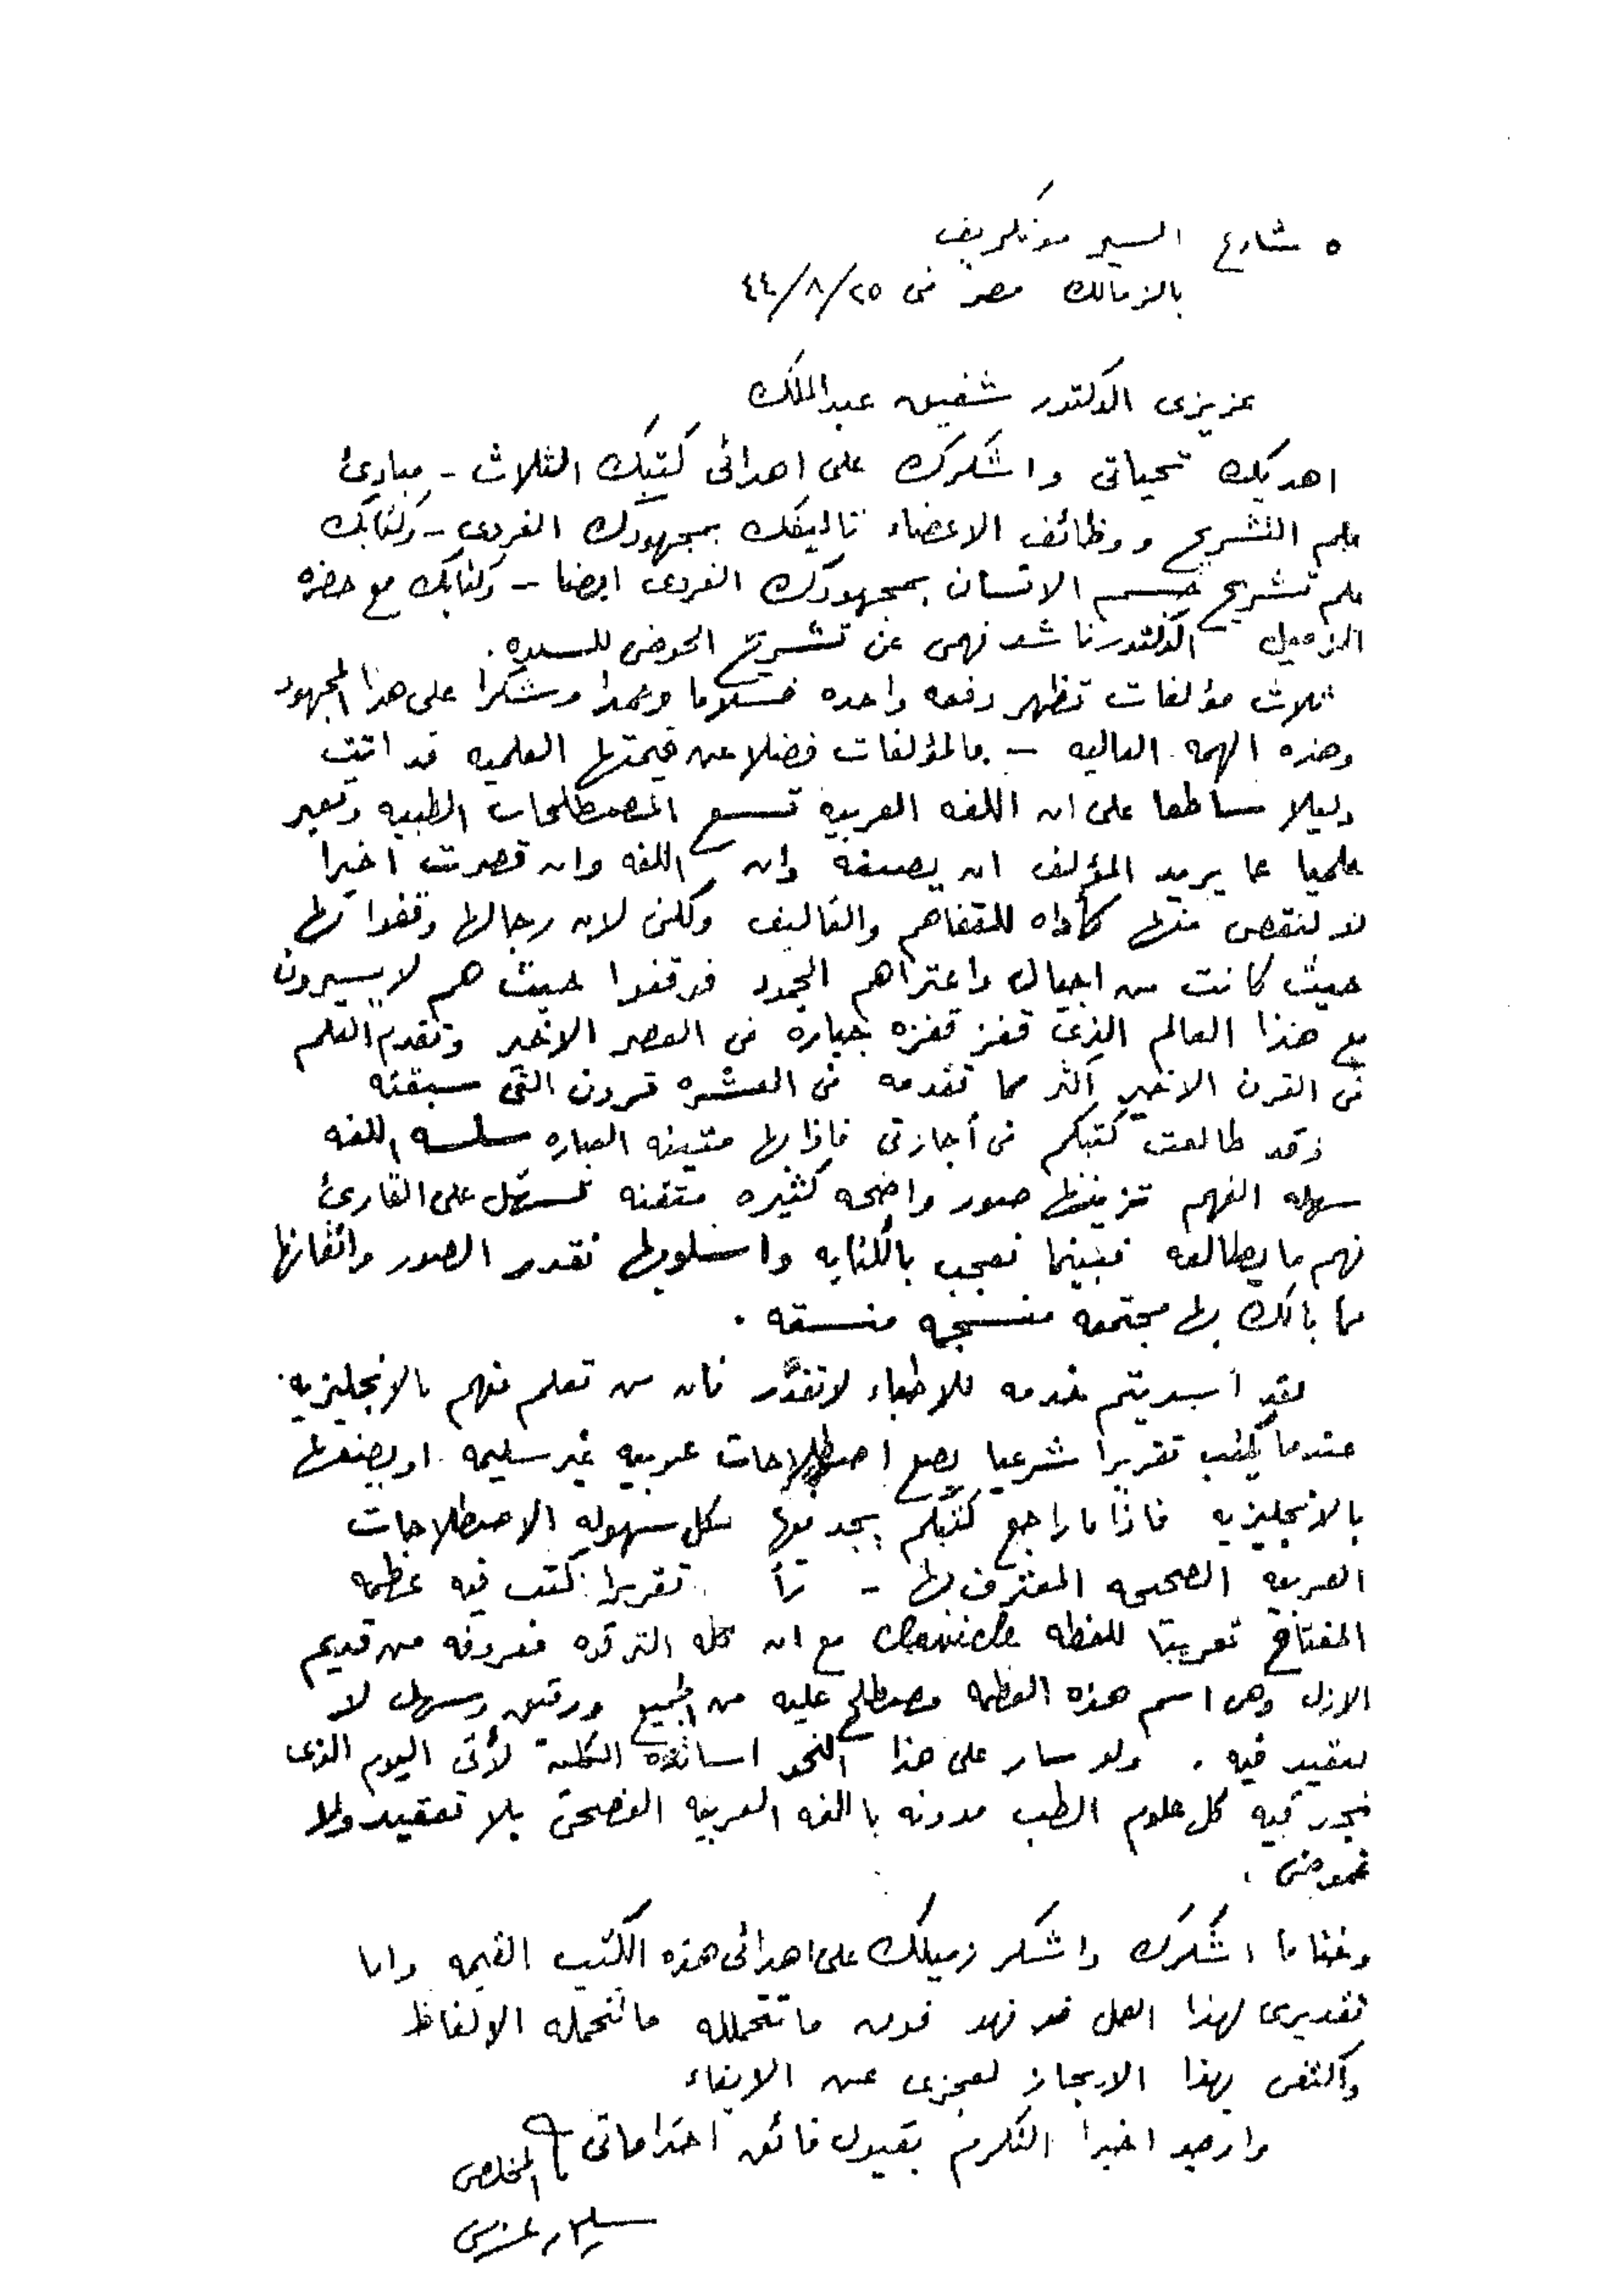 ٥ شارع السير مونكريف
بالزمالك مصر فى ٢٥/٨/٤٤
عزيزى الدكتور شفيق عبدالملك
اهديك تحياتى واشكرك على اهدائى كتبك الثلاث - مبادئ
علم التشريح ووظائف الاعضاء تاليفك بمجهودك الفردى - وكتابك
علم تشريح جسم الانسان بمجهودك الفردى ايضا - وكتابك مع حضره
الزميل الدكتور ناشد فهمى عن تشريح الحوض للسيده .
ثلاث مؤلفات تظهر دفعه واحده فسلاما وحمدا وشكرا على هذا المجهود
وهذه الهمه العاليه - فالمؤلفات فضلا عن قيمتها العلميه قد اتت
دليلا ساطعا على ان اللغه العربيه تسع المصطلحات الطبيه وتعبر
علميا عما يريد المؤلف ان يصفه وان اللغه وان قصرت اخيرا
لا لنقص منها كأداه للتفاهم والتأليف ولكن لان رجالها وقفوا بها
حيث كانت من اجيال واعتراهم الجمود فوقفوا حيث هم لا يسيرون
مع هذا العالم الذى قفز قفزه جباره فى العصر الاخير وتقدم العلم
فى القرن الاخير اكثر مما تقدمه فى العشره قرون التى سبقته
وقد طالعت كتبكم فى أجازتى فاذا بها متينه العباره سلسه اللغه
سهله الفهم تزينها صور واضحه كثيره متقنه تسهل على القارئ
فهم ما يطالعه فبينما نعجب بالكتابه واسلوبها نقدر الصور واتقانها
فما بالك بها مجتمعه منسجمه منسقه .
لقد اسديتم خدمه للاطباء لا تقدَّر فان من تعلم منهم بالانجليزيه
عندما يكتب تقريرا شرعيا يضع اصطلاحات عربيه غير سليمه او يضعها
بالانجليزيه فاذا ما راجع كتبكم يجد فيها بكل سهوله الاصطلاحات
العربيه الصحيحه المعترف بها - قرأت تقريرا كتب فيه عظمه
المفتاح تعريبا للفظه clavicle مع ان كلمه الترقوه معروفه من قديم
الازل وهى اسم هذه العظمه مصطلح عليه من الجميع ورقيق وسهل لا
تعقيد فيه . ولو سار على هذا النحو اساتذه الكليه لأتى اليوم الذى
نجد فيه كل علوم الطب مدونه باللغه العربيه الفصحى بلا تعقيد ولا
غموض .
وختاما اشكرك واشكر زميلك على اهدائى هذه الكتب القيمه واما
تقديرى لهذا العمل فهو فوق ما تتحمله الالفاظ
واكتفى بهذا الايجاز لعجزى عن الايفاء
وارجو اخيرا التكرم بقبول فائق احتراماتى المخلص
سليمان عزمى